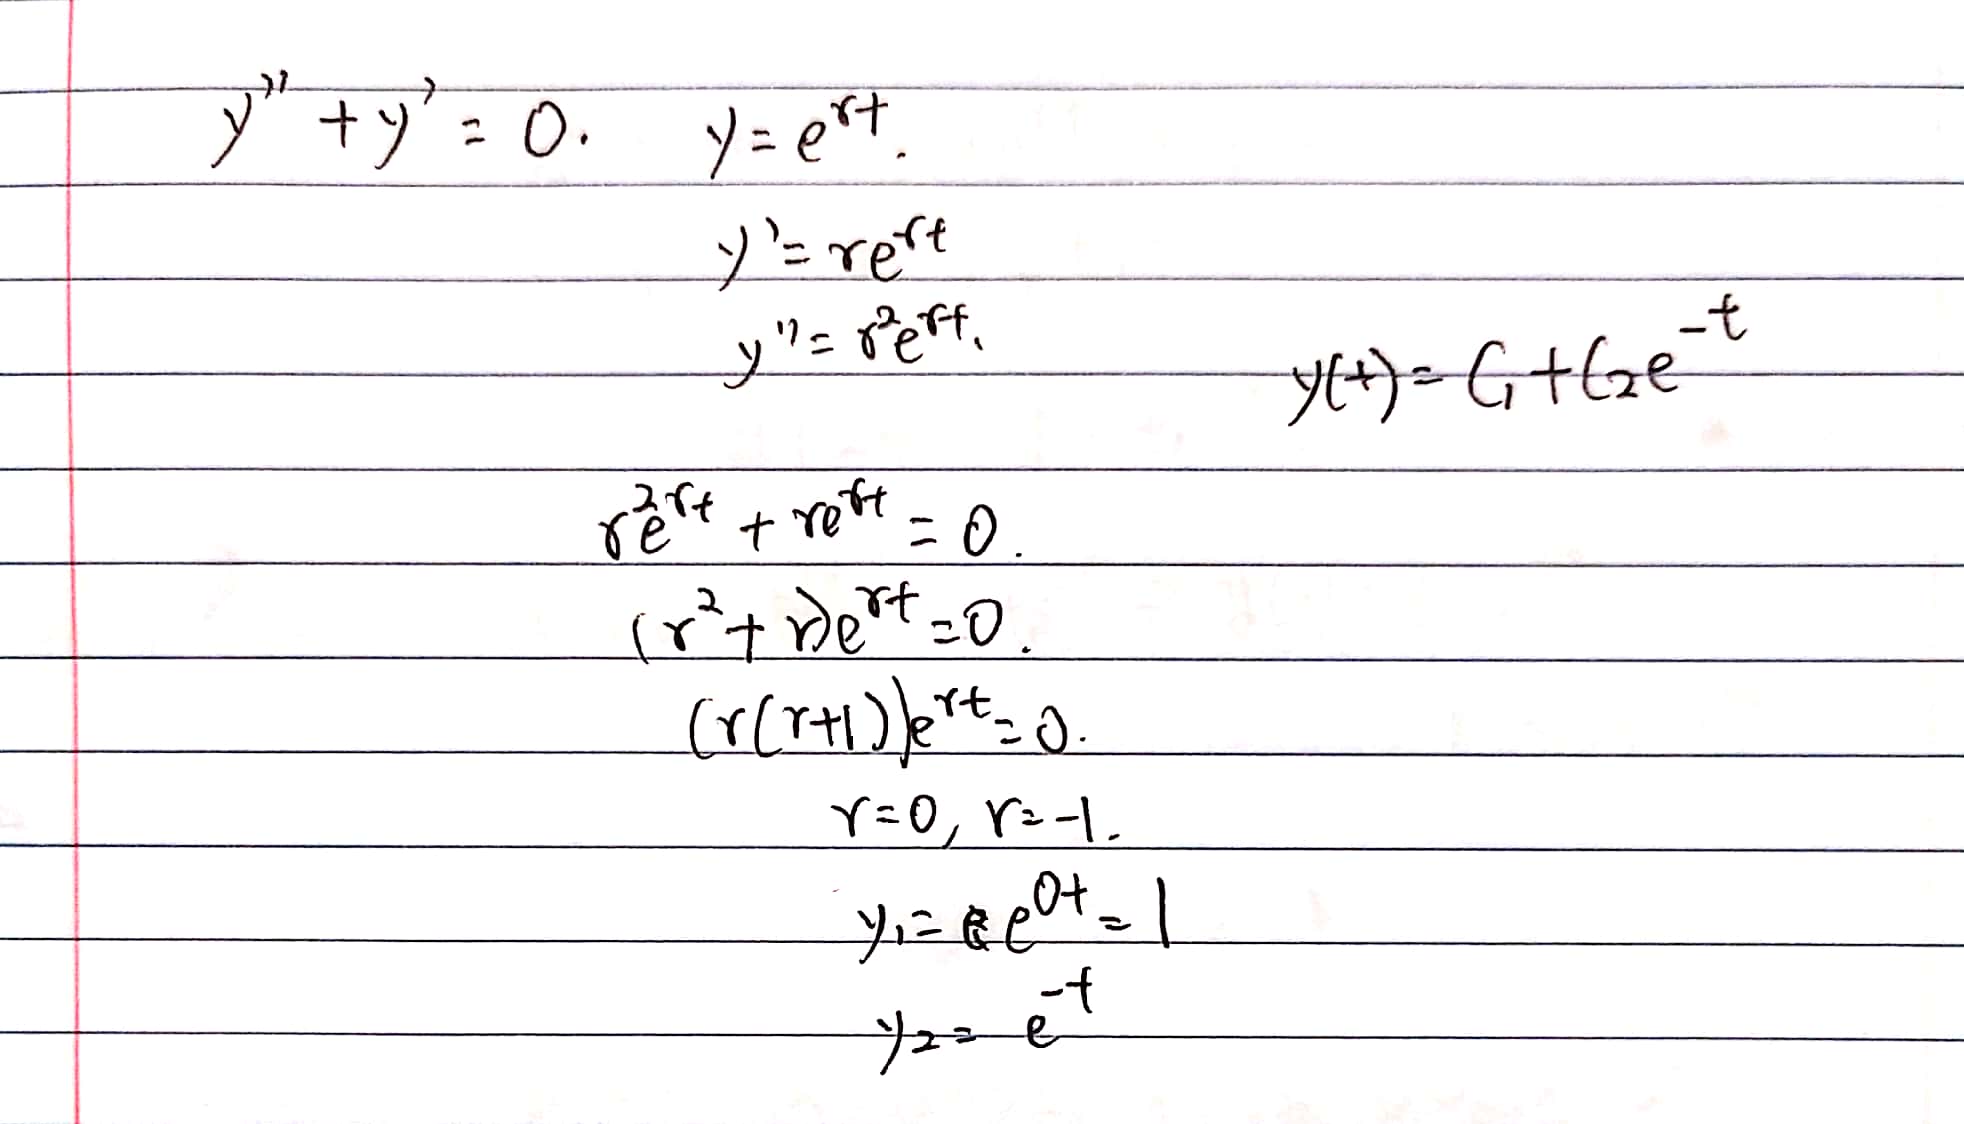 y'' + y' = 0. y = e^{rt}.
y' = re^{rt}
y'' = r^2e^{rt}.
y(t) = C_1 + C_2e^{-t}
r^2e^{rt} + re^{rt} = 0.
(r^2 + r)e^{rt} = 0.
(r(r+1))e^{rt} = 0.
r = 0, r = -1.
y_1 = e^{0t} = 1
y_2 = e^{-t}